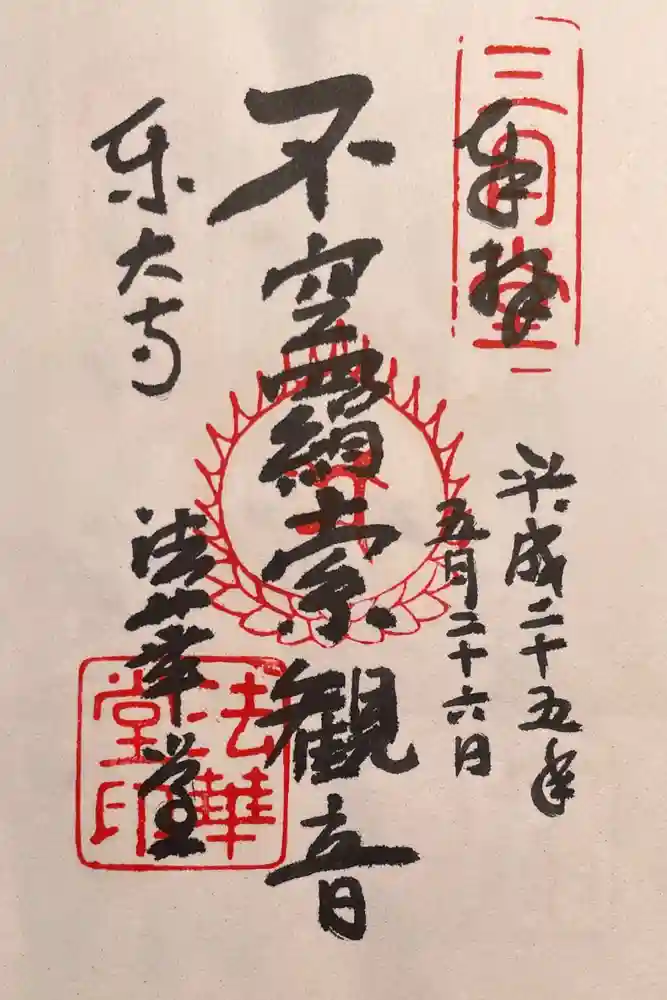 奉拝
三月堂
平成二十五年
五月二十六日
不空羂索観音
東大寺
法華堂
法華堂印